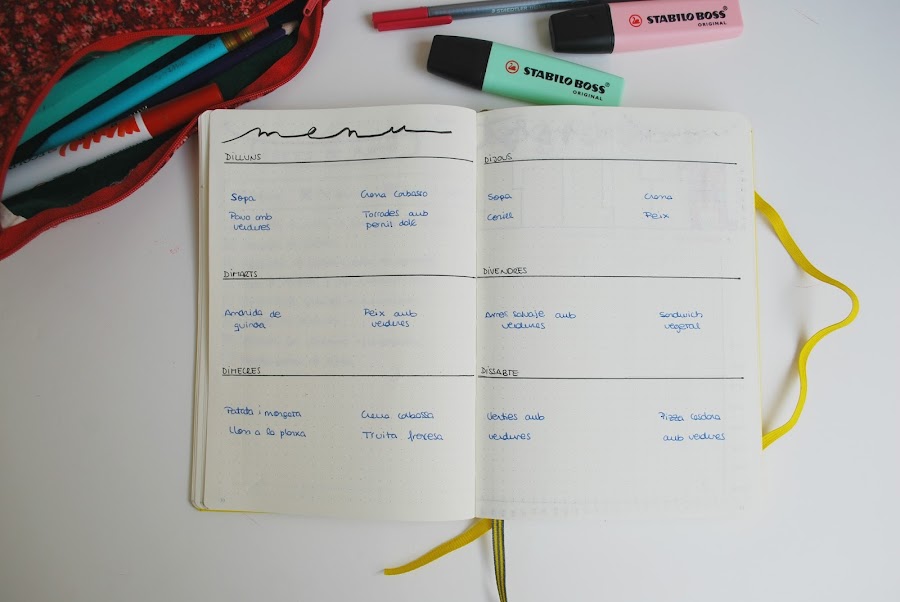 STAEDTLER
STABILO BOSS
ORIGINAL
STABILO BOSS
ORIGINAL
menu
DILLUNS
Sopa
Crema carbasso
Pavo amb
verdures
Torrades amb
pernil dolç
DIMARTS
Amanida de
quinoa
Peix amb
verdures
DIMECRES
Patata i mongeta
Crema carbassa
Llom a la planxa
Truita francesa
DIJOUS
Sopa
Crema
Conill
Peix
DIVENDRES
Arros salvatje amb
verdures
Sandwich
vegetal
DISSABTE
amb
verdures
Pizza casolana
amb verdures